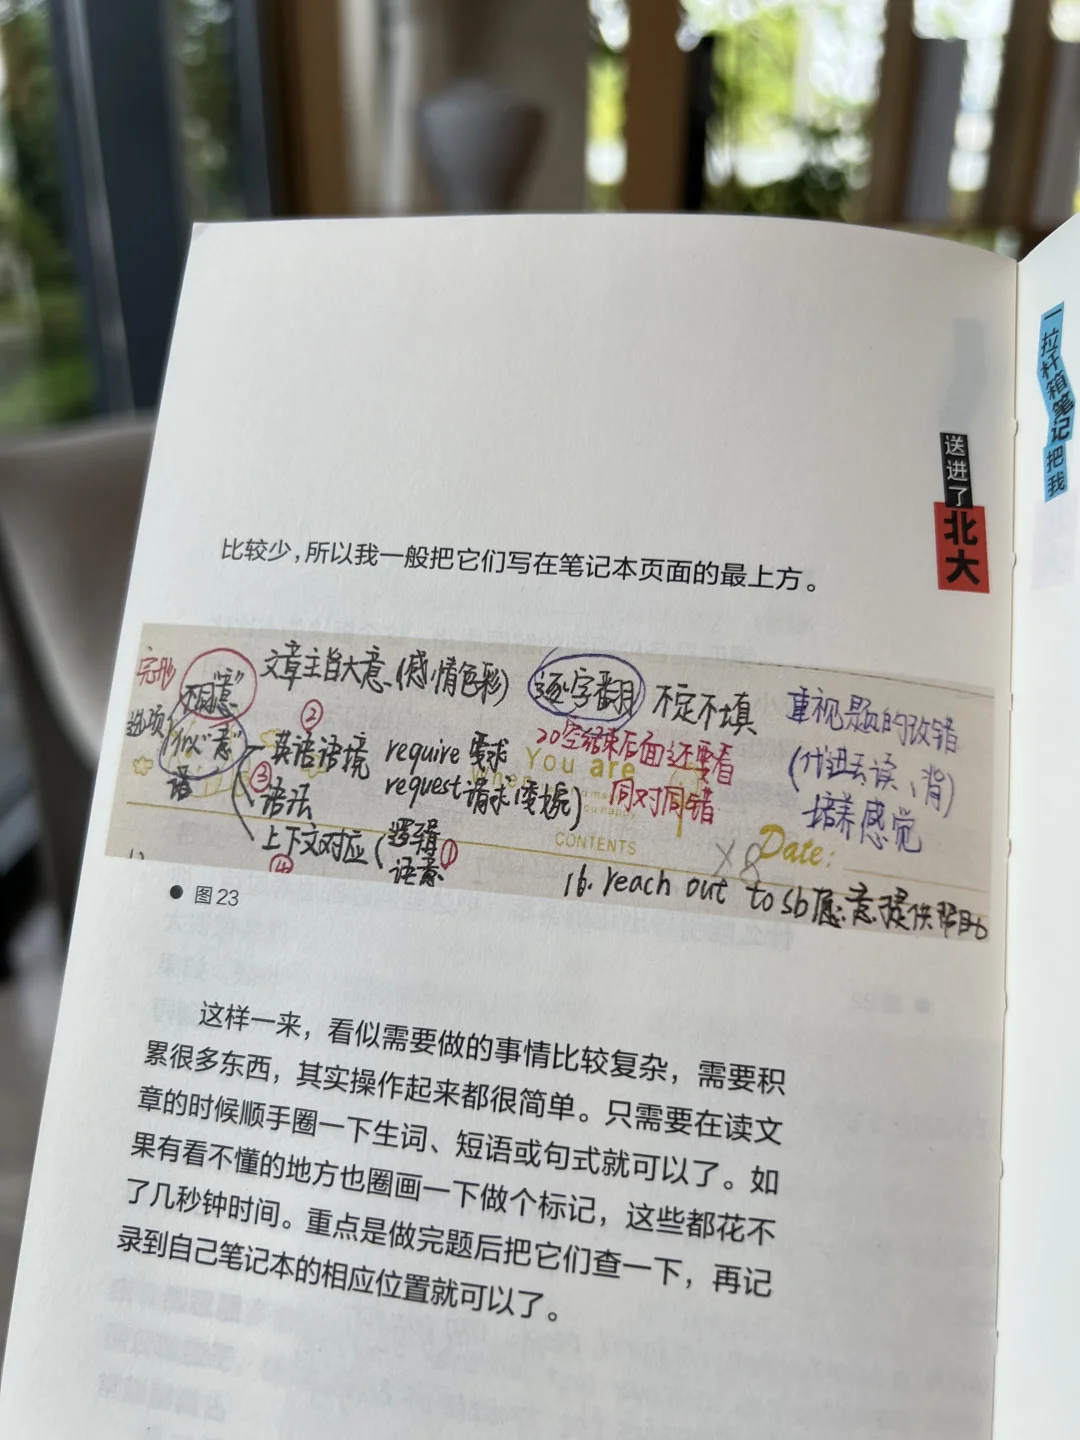 一拉杆箱笔记把我
送进了北大
比较少，所以我一般把它们写在笔记本页面的最上方。
完形 不同"意" 文章主旨大意（感情色彩） 逐字翻 不定不填 重视题的改错
选项 似"意" ② 英语语境 require 需求 20空结束后面还要看 （代进去读、背）
语 ③ 语法 request 请求 同对同错 培养感觉
上下文对应（逻辑 语意 ①
④
You are
CONTENTS
×8 Date:
16. reach out to sb 愿意提供帮助
● 图 23
这样一来，看似需要做的事情比较复杂，需要积
累很多东西，其实操作起来都很简单。只需要在读文
章的时候顺手圈一下生词、短语或句式就可以了。如
果有看不懂的地方也圈画一下做个标记，这些都花不
了几秒钟时间。重点是做完题后把它们查一下，再记
录到自己笔记本的相应位置就可以了。